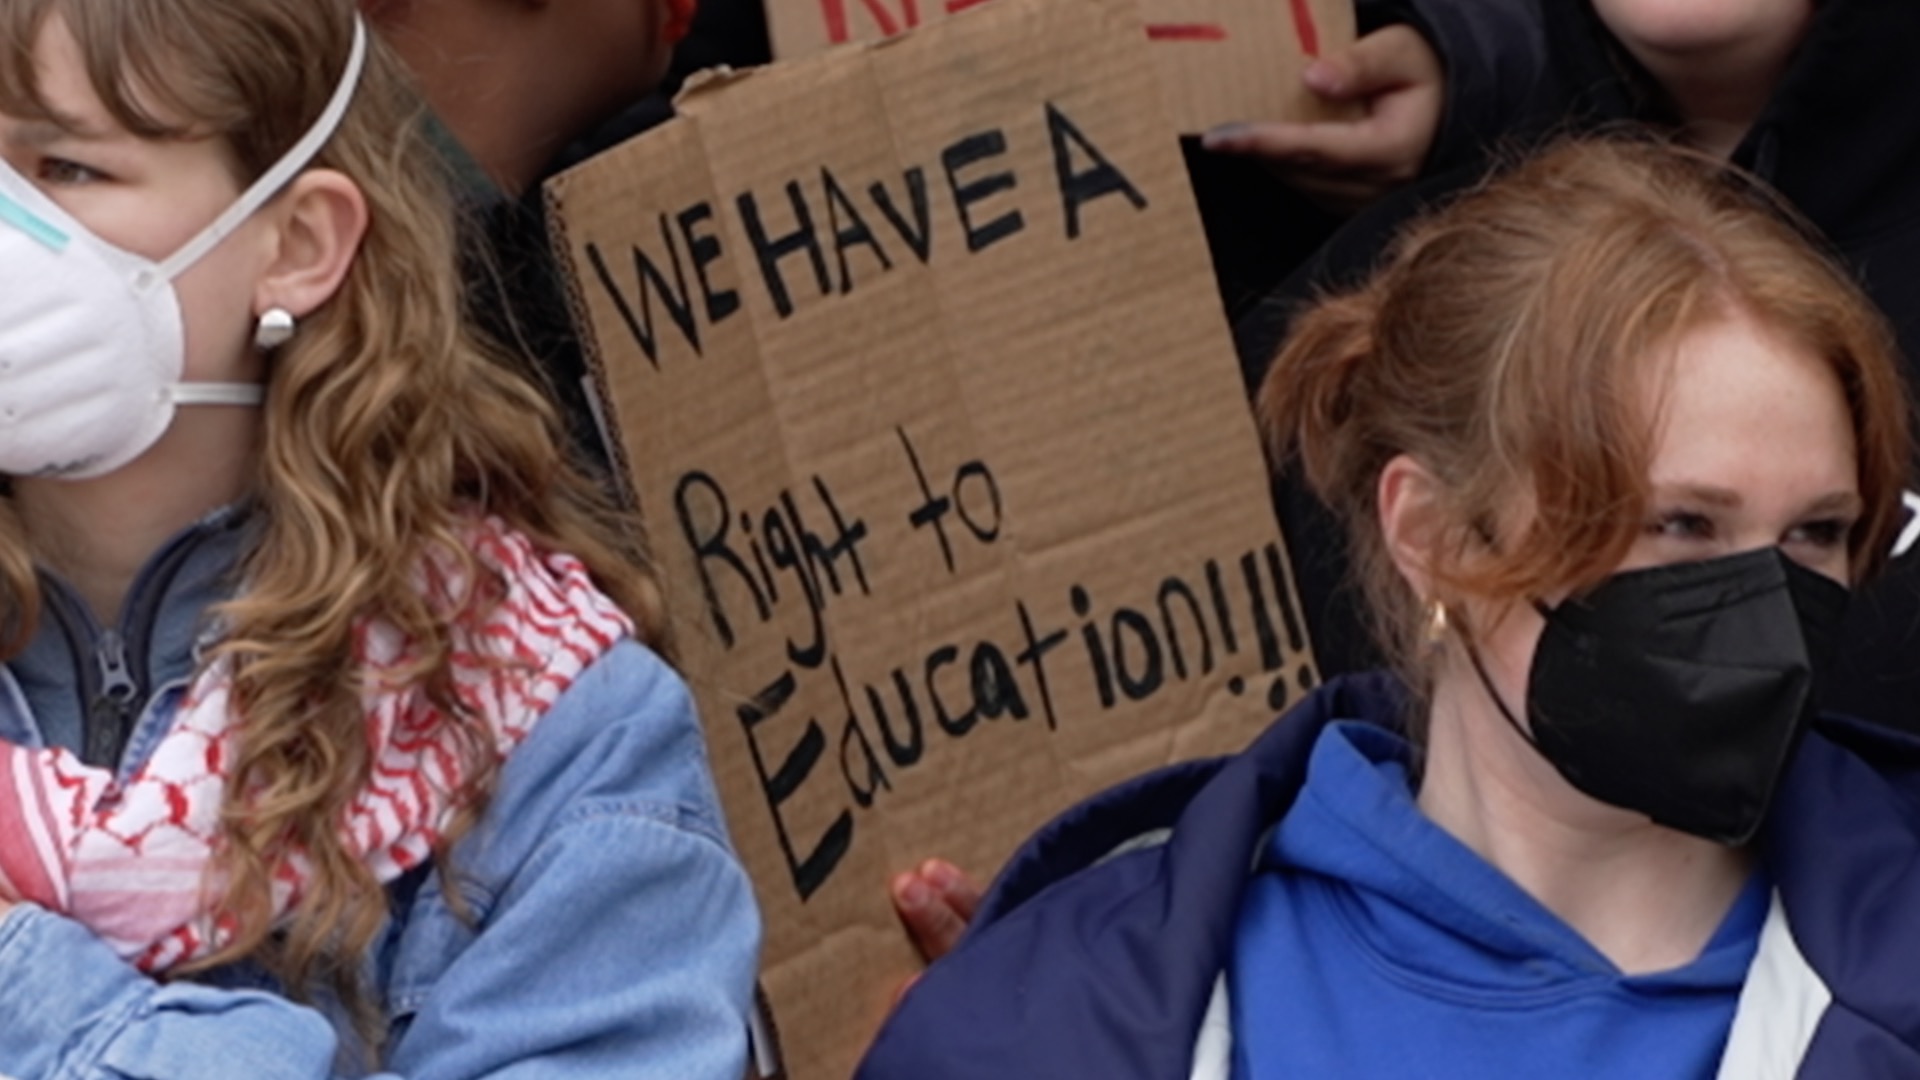 WE HAVE A
Right to
Education!!!